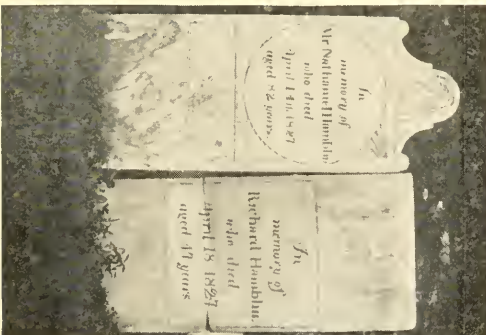 In
memory of
Mr Nathaniel Hamblin
who died
April 1827
aged 82 years
In
memory of
Richard Hamblin,
who died
April 18 1827
aged 47 years